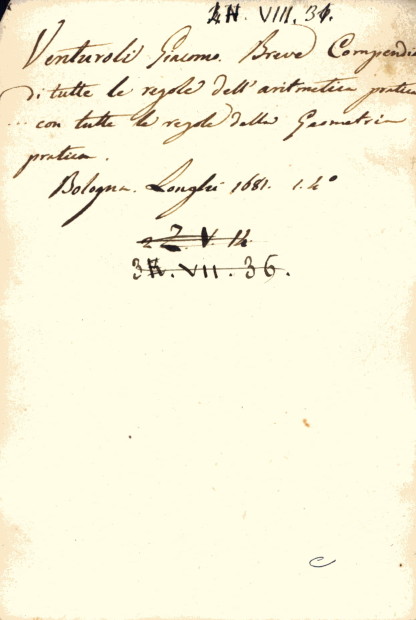 VIII. 31.
Venturoli Giacomo. Breve Compendio
di tutte le regole dell'aritmetica pratica
con tutte le regole della Geometria
pratica.
Bologna. Longhi 1681. 1. 4°
2 Z. V. 14
3K. VII. 36.